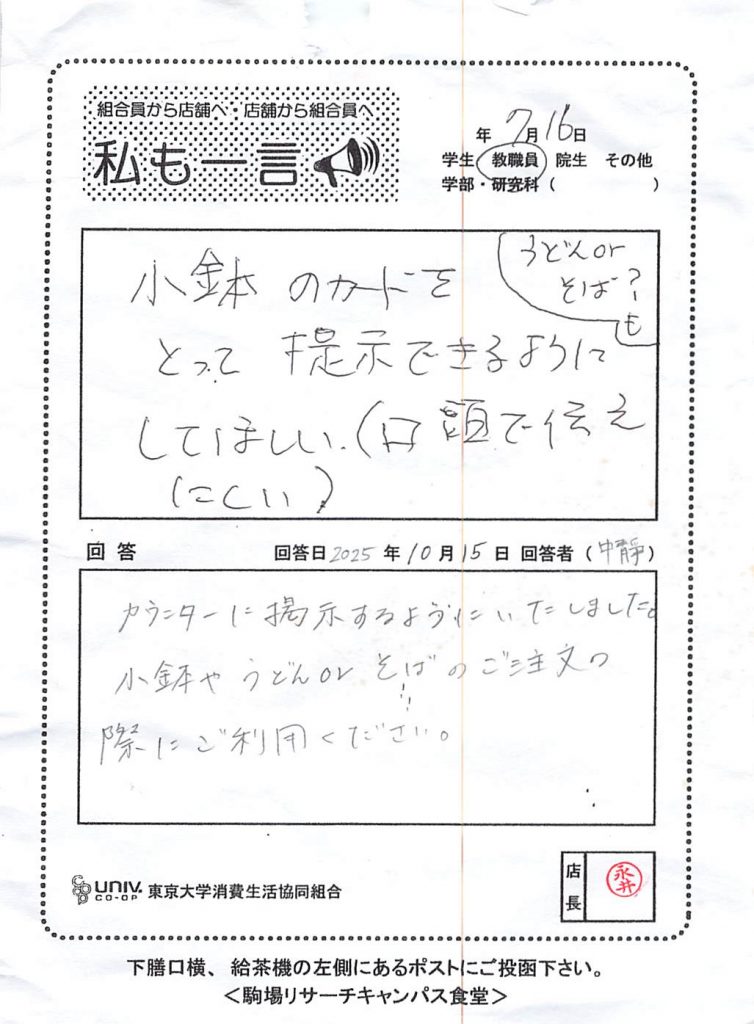 組合員から店舗へ・店舗から組合員へ
私も一言
年 7月16日
学生 教職員 院生 その他
学部・研究科（ ）
小鉢のカードを
とって 提示できるように
してほしい.(口頭で伝え
にくい)
うどんor
そば?
も
回答 回答日2025年10月15日 回答者（中静）
カウンターに掲示するようにいたしました。
小鉢や うどんor そばのご注文の
際にご利用ください。
UNIV.
CO-OP
東京大学消費生活協同組合
店長
永井
下膳口横、給茶機の左側にあるポストにご投函下さい。
＜駒場リサーチキャンパス食堂＞